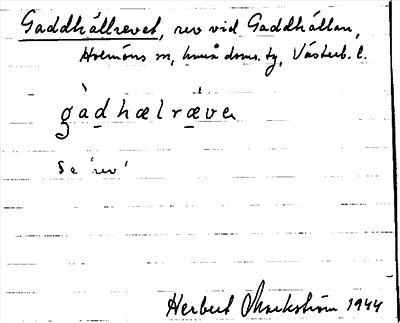 Gaddhällrevet, rev vid Gaddhällan,
Holmöns sn, Umeå doms. tg, Västerb. l.
gàdhælrǽva
Se 'rev'
Herbert Markström 1944